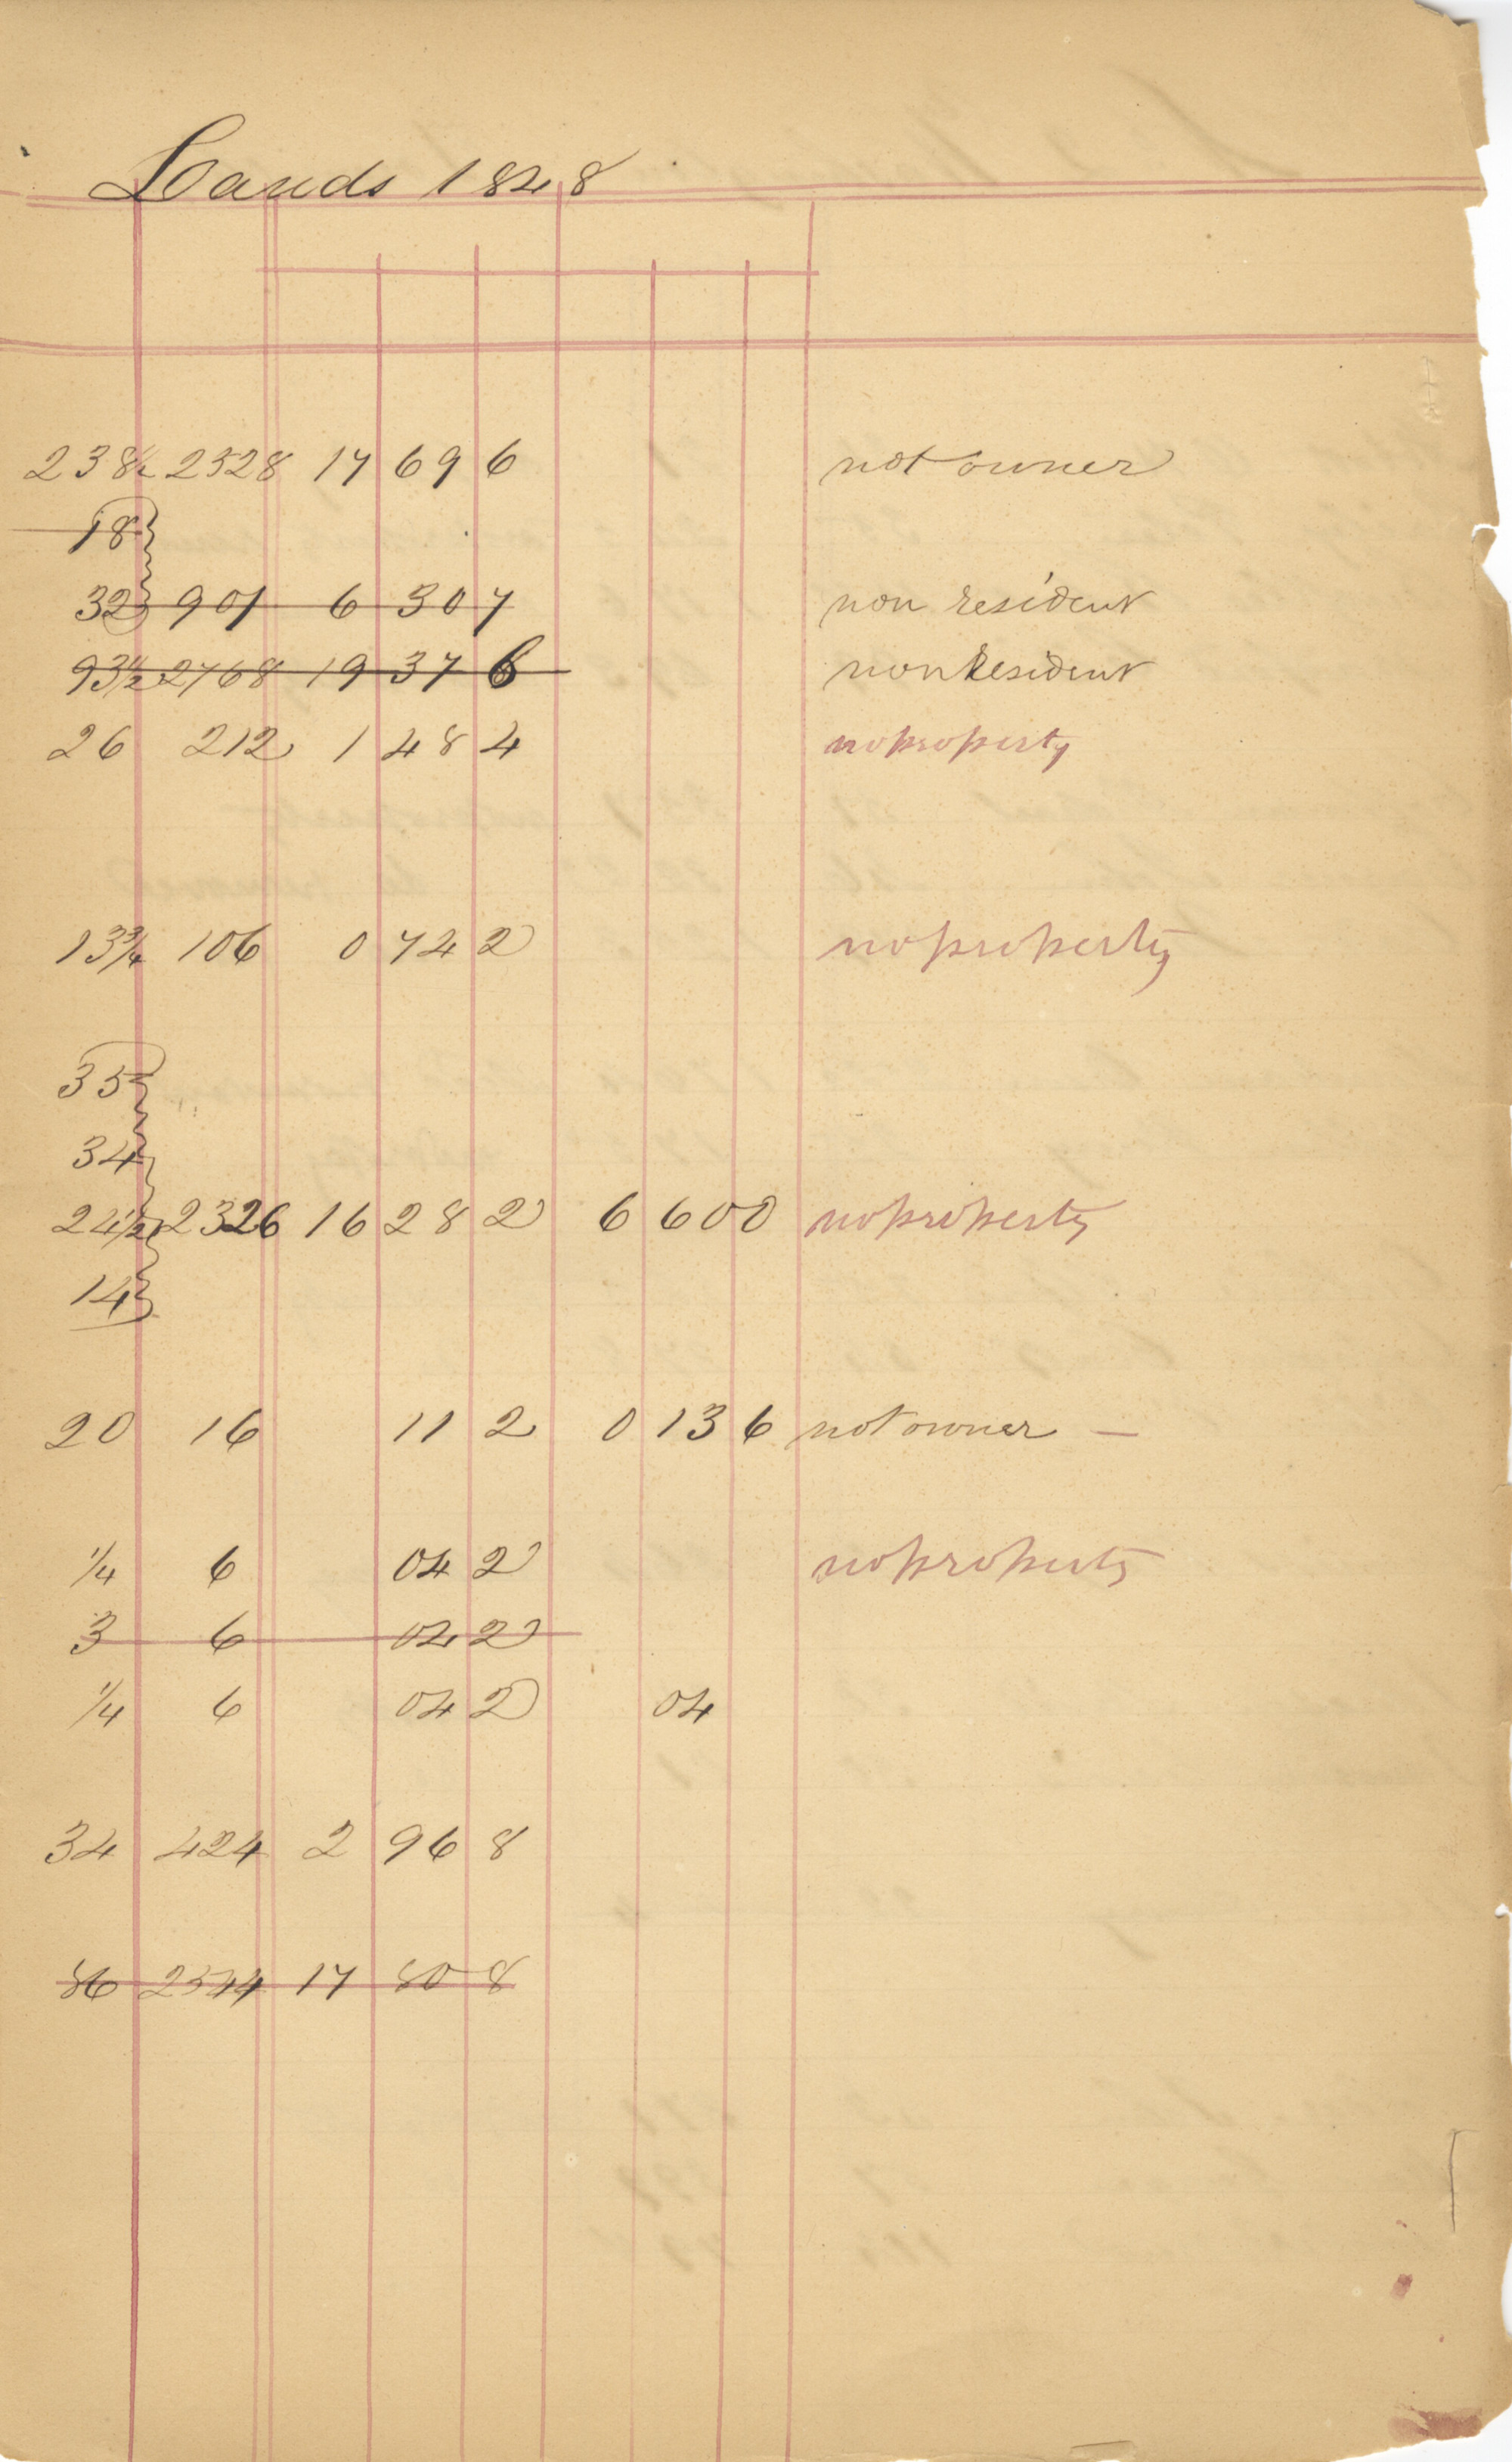 Lands 1848
238½ 2528 17 69 6 not owner
18
32 901 6 30 7 non resident
93½ 2768 19 37 6 non Resident
26 212 1 48 4 no property
13¾ 106 0 74 2 no property
35
34
24½ 2326 16 28 2 6 60 0 no property
14
20 16 11 2 0 13 6 not owner —
¼ 6 04 2 no property
3 6 04 2
¼ 6 04 2 04
34 424 2 96 8
86 2544 17 80 8